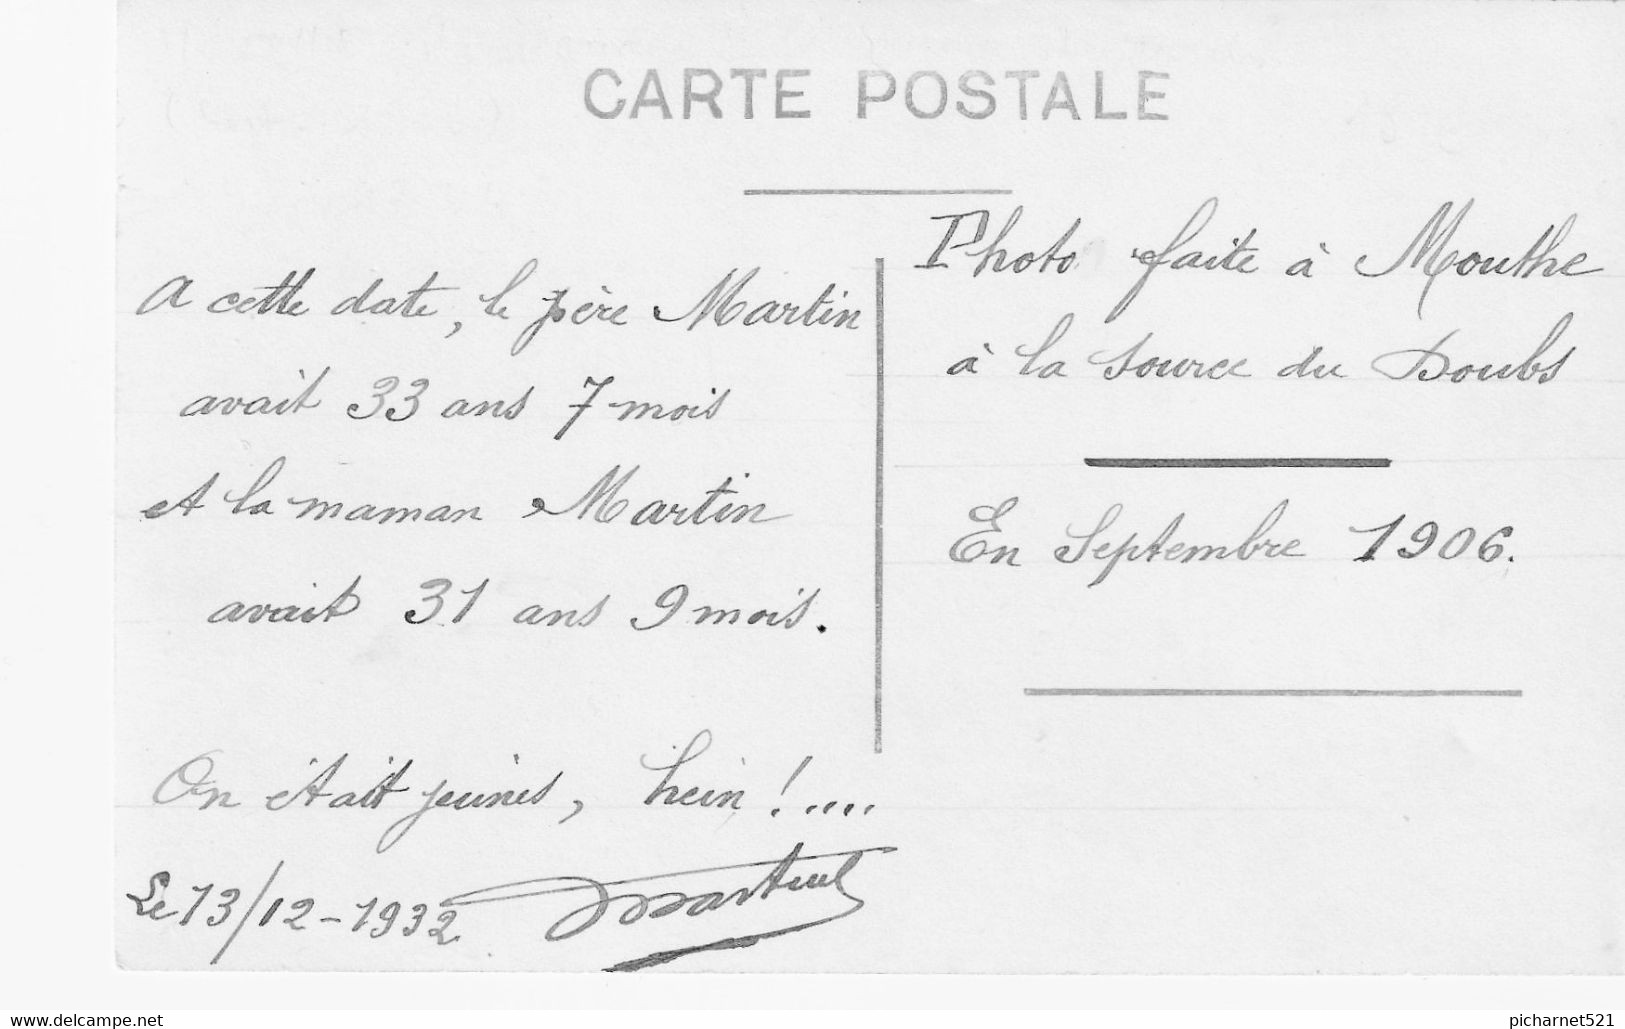 CARTE POSTALE
A cette date, le père Martin
avait 33 ans 7 mois
et la maman Martin
avait 31 ans 9 mois.
On était jeunes, hein !....
Le 13/12-1932
Photo faite à Mouthe
à la source du Doubs
En Septembre 1906.
www.delcampe.net
picharnet521